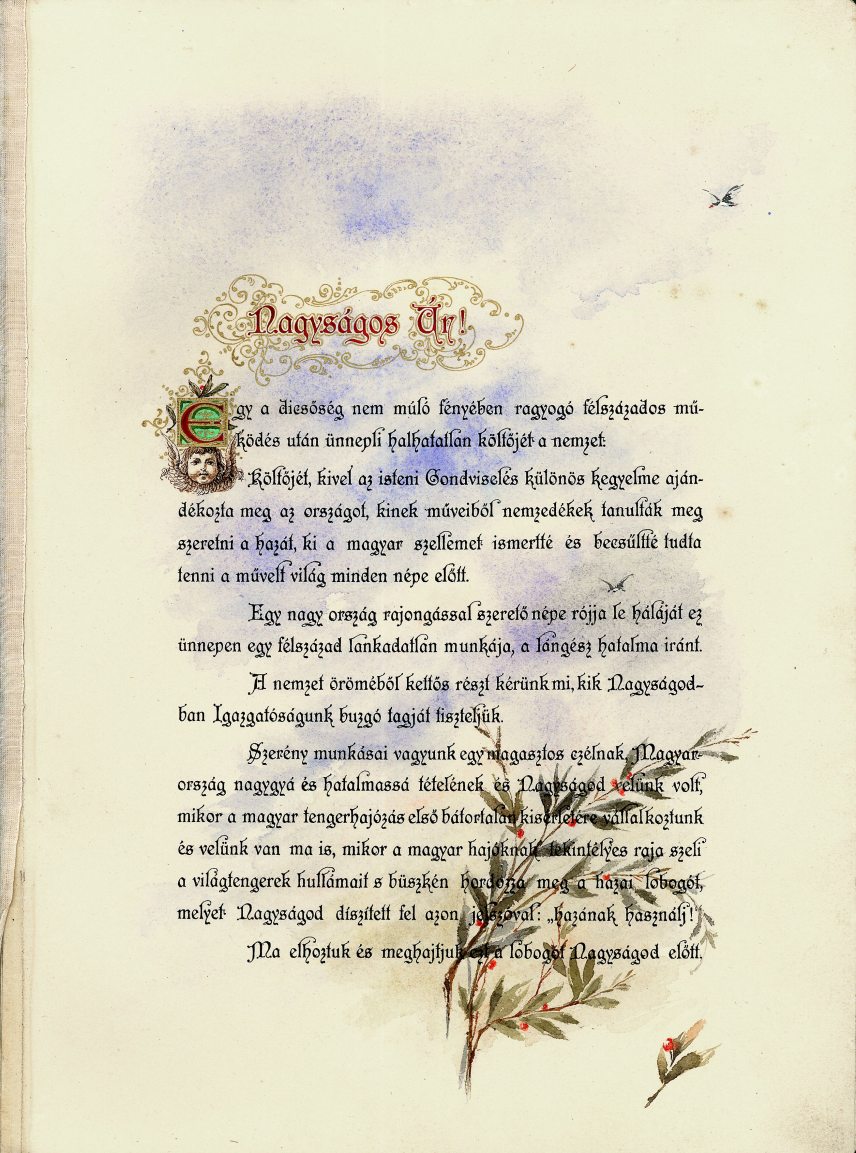 Nagyságos Úr!
Egy a dicsőség nem múló fényében ragyogó félszázados mű-
ködés után ünnepli halhatatlan költőjét a nemzet.
Költőjét, kivel az isteni Gondviselés különös kegyelme aján-
dékozta meg az országot, kinek műveiből nemzedékek tanulták meg
szeretni a hazát, ki a magyar szellemet ismertté és becsűltté tudta
tenni a művelt világ minden népe előtt.
Egy nagy ország rajongással szerető népe rójja le háláját ez
ünnepen egy félszázad lankadatlan munkája, a lángész hatalma iránt.
A nemzet öröméből kettős részt kérünk mi, kik Nagyságod-
ban Igazgatóságunk buzgó tagját tiszteljük.
Szerény munkásai vagyunk egy magasztos czélnak, Magyar-
ország nagygyá és hatalmassá tételének és Nagyságod velünk volt,
mikor a magyar tengerhajózás első bátortalan kisérletére vállalkoztunk
és velünk van ma is, mikor a magyar hajóknak tekintélyes raja szeli
a világtengerek hullámait s büszkén hordozza meg a hazai lobogót,
melyet Nagyságod díszített fel azon jelszóval: „hazának használj!”
Ma elhoztuk és meghajtjuk ezt a lobogót Nagyságod előtt.